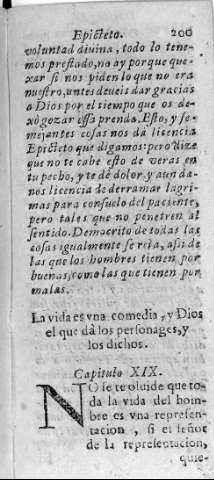 Epicteto. 200
voluntad diuina, todo lo tene-
mos prestado, no ay porque que-
xar si nos piden lo que no era
nuestro, antes deueis dar gracias
a Dios por el tiempo que os de-
xò gozar essa prenda. Esto, y se-
mejantes cosas nos dà licencia
Epicteto que digamos: pero dize
que no te cabe esto de veras en
tu pecho, y te dè dolor, y aun dà-
nos licencia de derramar lagri-
mas para consuelo del paciente,
pero tales que no penetren al
sentido. Democrito de todas las
cosas igualmente se reìa, assi de
las que los hombres tienen por
buenas, como las que tienen por
malas.
La vida es vna comedia, y Dios
el que dà los personages, y
los dichos.
Capitulo XIX.
NO se te oluide que to-
da la vida del hom-
bre es vna represen-
tacion, si el señor
de la representacion,
quie-